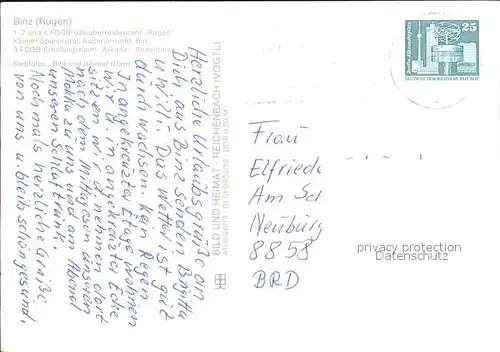 Binz (Rügen)
1, 2 und 4 FDGB-Urlauberrestaurant „Rügen"
Kleiner Speisesaal, Außenansicht, Bar
3 FDGB-Erholungsheim „Arkona"
Farbfotos: Bild und Heimat (Darr)
Herzliche Urlaubsgrüße an
Dich aus Binz senden Brigitte
u. Willi. Das Wetter ist gut
durchwachsen. kein Regen
In angekreuzter Etage wohnen
wir u. in angekreuzter Ecke
sitzen wir u. nehmen dort
nach dem Mittagessen unseren
Mokka zu uns und am Abend
unseren Schlaftrunk.
Nochmals herzliche Grüße
von uns u. bleib schön gesund.
BILD UND HEIMAT · REICHENBACH (VOGTL)
25
DEUTSCHE DEMOKRATISCHE REPUBLIK
Frau
Elfriede
Am Sch
Neuburg
8858
BRD
privacy protection
Datenschutz